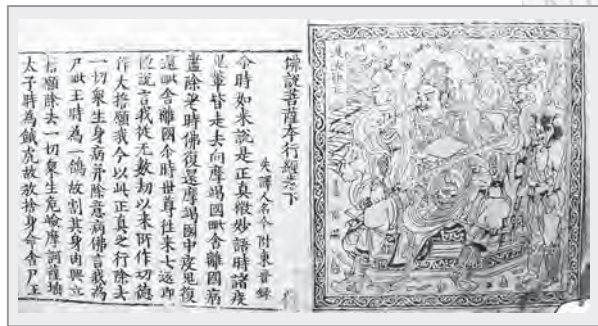 佛說菩薩本行經卷下
失譯人名今附東晉錄
尒時如來說是正真微妙語時諸疫
鬼輩皆走去向摩竭國毗舍離國病
盡除差時佛復還摩竭國中疫鬼復
還毗舍離國尒時世尊往來七返即
便說言我從无數劫以來所作功德
作大誓願我今以此正真之行除去
一切衆生身病并除意病佛言我為
尸毗王時為一鴿故割其身肉興立
誓願除去一切衆生危嶮摩訶薩埵
太子時為餓虎故放捨身命舍尸王